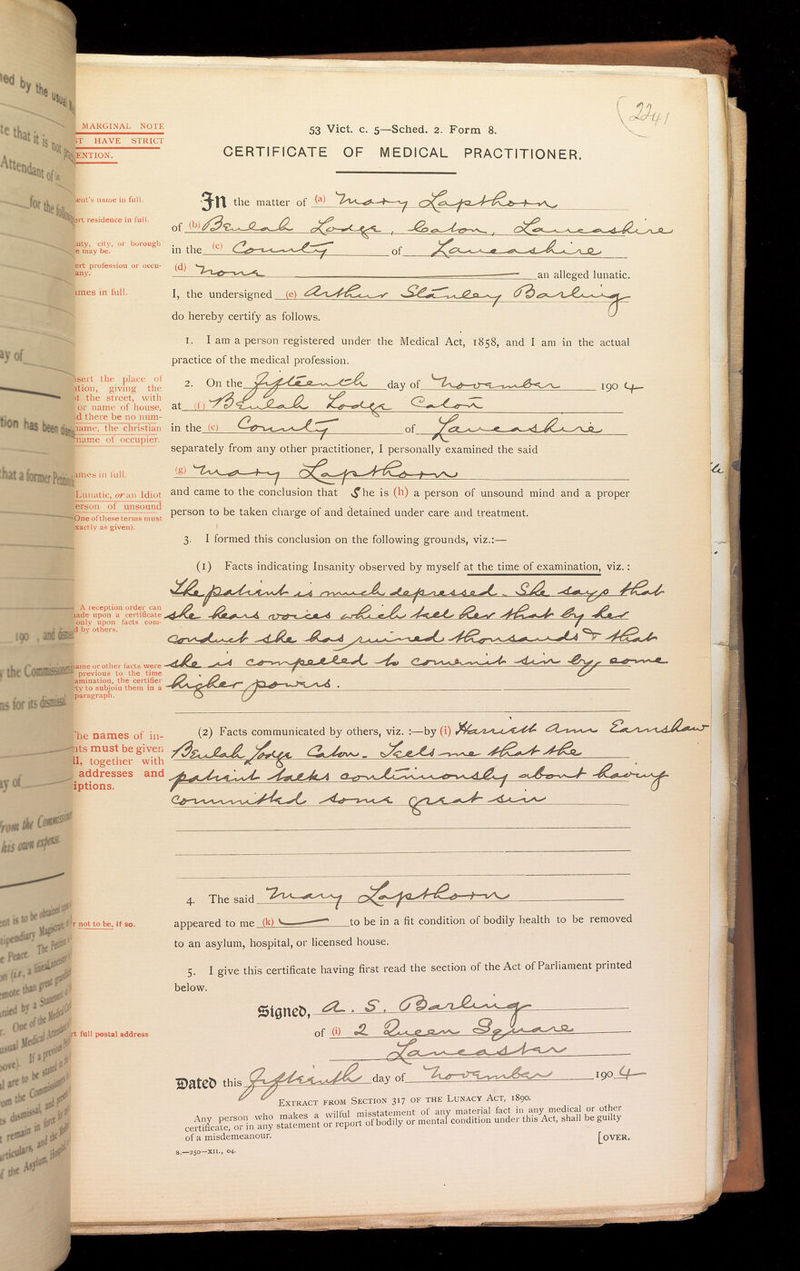 2241
53 Vict. c. 5—Sched. 2. Form 8.
CERTIFICATE OF MEDICAL PRACTITIONER.
MARGINAL NOTE
HAVE STRICT
ENTION.
ent's name in full.
In the matter of (a) Mary Lapthorn
ert residence in full.
of (b) Beulah Lodge, Caton, Lancashire
unty, city, or borough
e may be.
in the (c) County of Lancashire
ert profession or occu-
any.
(d) None an alleged lunatic.
ames in full.
I, the undersigned (e) Arthur Stanley Barling
do hereby certify as follows.
1. I am a person registered under the Medical Act, 1858, and I am in the actual
practice of the medical profession.
nsert the place of
ation, giving the
of the street, with
or name of house,
d there be no num-
name, the christian
name of occupier.
2. On the fifteenth day of November 1904
at (f) Beulah Lodge Caton
in the (c) County of Lancashire
separately from any other practitioner, I personally examined the said
ames in full.
(g) Mary Lapthorn
Lunatic, or an Idiot
erson of unsound
One of these terms must
xactly as given).
and came to the conclusion that She is (h) a person of unsound mind and a proper
person to be taken charge of and detained under care and treatment.
3. I formed this conclusion on the following grounds, viz.:—
(1) Facts indicating Insanity observed by myself at the time of examination, viz.:
The patient is much depressed. She says that
she hears voices which tell her that by her
conduct she has ruined thousands & that
she is compelled to commit sin by some
higher powers.
A reception order can
ade upon a certificate
only upon facts com-
d by others.
ame or other facts were
previous to the time
amination, the certifier
ty to subjoin them in a
paragraph.
The names of in-
nts must be given
ll, together with
addresses and
iptions.
(2) Facts communicated by others, viz. :—by (i) Harriett Ann Earnshaw
Beulah Lodge Caton. Tells me that the
patient talks continuously about having
committed some great sin
4. The said Mary Lapthorn
r not to be, if so.
appeared to me (k) to be in a fit condition of bodily health to be removed
to an asylum, hospital, or licensed house.
5. I give this certificate having first read the section of the Act of Parliament printed
below.
Signed, A. S. Barling
rt full postal address
of (l) 2 Queen Square
Lancaster
Dated this fifteenth day of November 1904
EXTRACT FROM SECTION 317 OF THE LUNACY ACT, 1890.
Any person who makes a wilful misstatement of any material fact in any medical or other
certificate, or in any statement or report of bodily or mental condition under this Act, shall be guilty
of a misdemeanour.
[OVER.
S.—250—XII., 04.
ed by the usual
te that it is not
Attendant of
for the
ay of
tion has been
hat a former
190 , and
the Commissioners
ns for its dismissal
ay of
his own expense.